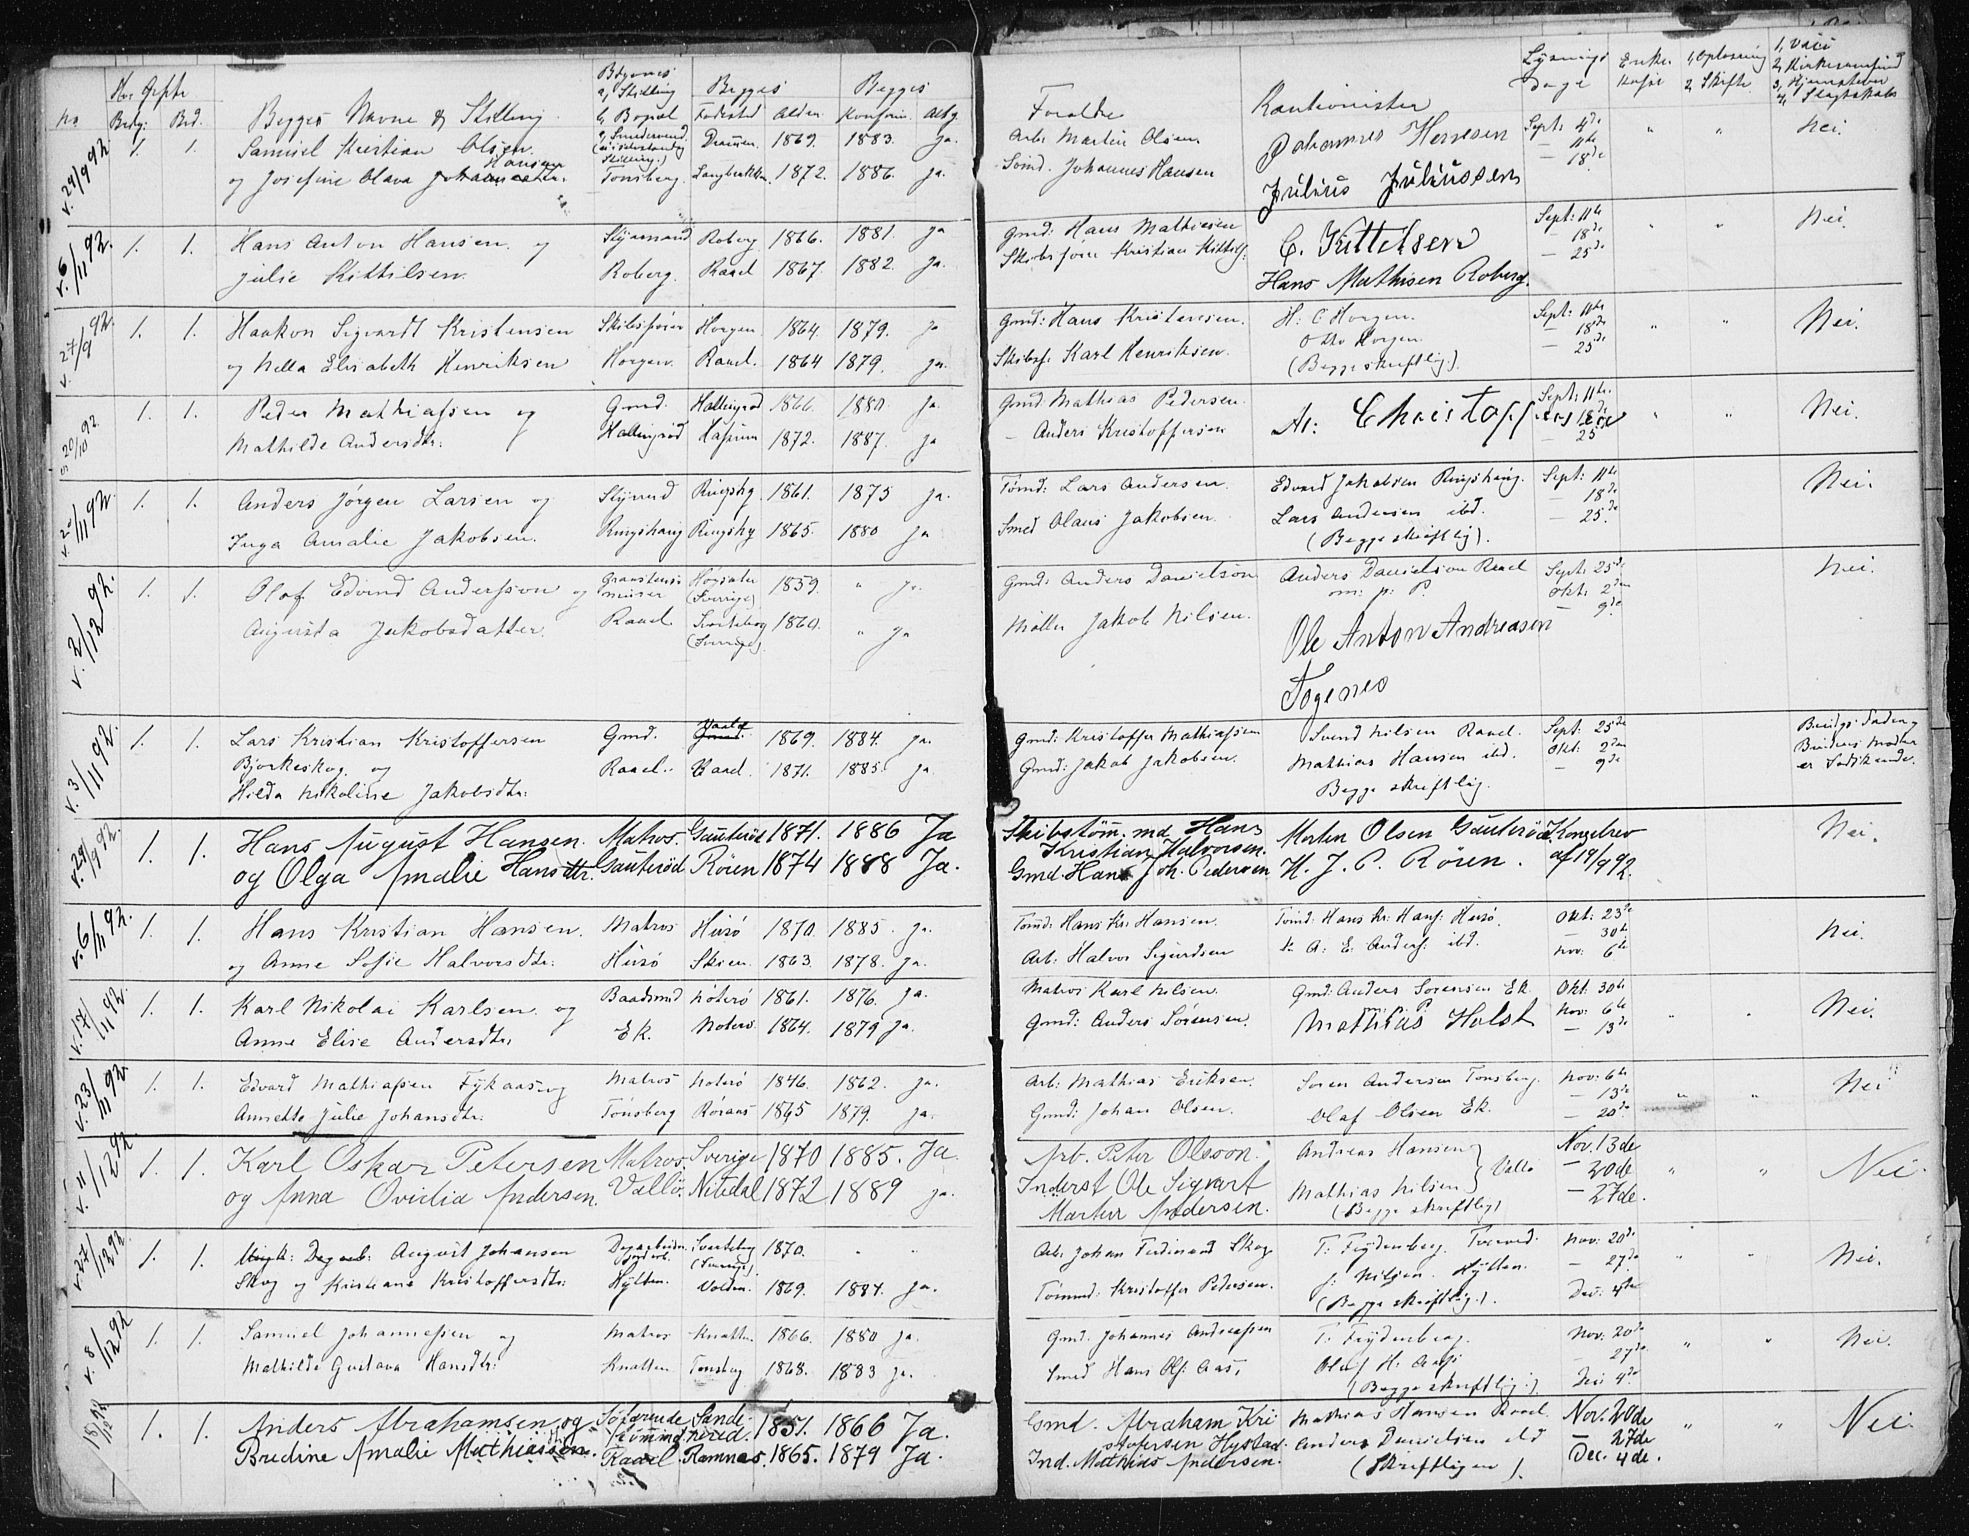 No Hvor Gift Bryllup: Begges Navne & Stilling. a, Stilling b, Bopæl Begges Fødested Alder. Begges Konfirm. Forældre Kautionister Lysnings Dage 2, Skifte 2, Kirkesamfund
v. 29/9 92 1. 1. Samuel Kristian Olsen Drammen. 1869. 1883. Ja. Arb: Martin Olsen Johannes Hansen Sept: 4de " " Nei.
og Josefine Olava Hansen Tønsberg. 1872. 1886. Ja. Sømd. Johannes Hansen Julius Juliussen — 11te — 18de
v. 6/11 92. 1. 1. Hans Anton Hansen og Styrmand Roberg 1866. 1881. Ja Gmd: Hans Mathiesen C. Kittelsen Sept: 11te " " Nei.
Julie Kittilsen. Roberg. Raael 1867. 1882. Ja. Skibsfører Kristian Kittils. Hans Mathisen Roberg. — 18de — 25de
v. 27/9 92. 1. 1. Haakon Sigvardt Kristensen Skibsfører Horgen 1864 1879. Ja Gmd: Hans Kristensen. H: C Horgen. Sept: 11te " " Nei.
og Nella Elisabeth Henriksen Horgen. Raael. 1864 1879. Ja. Skibsf. Karl Henriksen. Otto Horgen — 18de
(Begge skriftlig.) — 25de
20/10 92 1. 1. Peder Mathiassen og Gmd. 1866. 1880. Ja. Gmd. Mathias Pedersen. A: Christoffersen Sept: 11te. " " Nei.
Mathilde Andersdtr. 1872. 1887. Ja — Anders Kristoffersen — 18de — 25de
v. 20/11 92. 1. 1. Anders Jørgen Larsen og Styrmd Ringshg. 1861. 1875 Ja. Tømd: Lars Andersen. Edvard Jakobsen Ringshaug. Sept: 11te Nei.
Inga Amalie Jakobsen. Ringshaug Ringshg 1865. 1880 Ja Smed Olaus Jakobsen. Lars Andersen ibd. — 18de
(Begge skriftlig). — 25de
v. 2/12 92. 1. 1. Olaf Edvind Andersson og 1859. " Ja. Gmd: Anders Danielson Anders Danielson Raael Sept: 25de Nei.
Augusta Jakobsdatter. Raael (Sverige) 1860. " Ja Møller Jakob Nilsen. m: p: P. Okt: 2den
Ole Anton Andreasen — 9de
Togenes
v. 3/11 92. 1. 1. Lars Kristian Kristoffersen Gmd. Raael 1869. 1884. Ja. Gmd: Kristoffer Mathiassen Svend Nilsen Raael. Sept: 25de
Bjørkeskog og Raael. Raael. 1871. 1885. Ja Gmd: Jakob Jakobsen. Mathias Hansen ibd. Okt: 2den Brudens Moder
Hilda Nikoline Jakobsdtr: Begge skriftlig. — 9de er Sødskende.
v. 29/9 92. 1. 1. Hans August Hansen. Matros. Gauterød 1871. 1886 Ja Skibstøm. md. Hans Morten Olsen Gauterød Kongebrev Nei.
og Olga Amalie Hansdtr. Gauterød Røren 1874 1888 Ja. Kristian Halvorsen. H. J. P. Røren. af 19/9 92.
Gmd. Hans Joh. Pedersen
v. 6/11 92. 1. 1. Hans Kristian Hansen. Matros Husø 1870. 1885. Ja. Tømd: Hans Kr. Hansen. Tømd: Hans Kr: Hans: Husø. Okt: 23de Nei.
og Anne Sofie Halvorsdtr: Husø Skien. 1863. 1878. Ja. Arb: Halvor Sigurdsen A: E: Anders: ibd. — 30te Nov: 6te
v. 17/11 92. 1. 1. Karl Nikolai Karlsen og Baadsmd Nøterø 1861. 1876. Ja. Matros Karl Nilsen. Gmd: Anders Sørensen Ek. Okt: 30te " " Nei.
Anne Elise Andersdtr. Ek. Nøterø 1864. 1879 Ja. Gmd: Anders Sørensen. Mathias Holst Nov: 6te — 13de
v. 23/11 92 1. 1. Edvard Mathiassen Fykaas og Matros Nøterø 1846. 1862. Ja. Arb: Mathias Eriksen. Søren Andersen Tønsberg. Nov: 6te " " Nei
Annette Julie Johansdtr. Tønsberg Røraas 1865 1879. Ja. Gmd: Johan Olsen. Olaf Olsen Ek. — 13de — 20de
v. 11/12 92 1. 1. Karl Oskar Petersen Matros. Sverige 1870 1885. Ja. Arb. Peter Olsson. Andreas Hansen Vallø Nov. 13de " " Nei
og Anna Ovidia Andersen. Vallø. Nitedal 1872 1889 Ja. Inderst Ole Sigvart Mathias Nilsen — 20de
Martin Andersen. (Begge skriftlig) — 27de.
v. 27/12 92 1. 1. August Johansen Svarteborg (Sverige). 1870. " " Arb: Johan Ferdinand Skog T: Frydenberg. Nov: 20de " " Nei.
Skog og Kristiane Kristoffersdtr: Hytten. Volden. 1869. 1884. Ja. Tømmd: Kristoffer Pedersen. J: Nilsen. Hytten. — 27de
(Begge skriftlig.). Dec: 4de
v. 8/12 92 1. 1. Samuel Johannessen og Matros Knatten 1866. 1880 Ja. Gmd. Johannes Andreassen T: Frydenberg. Nov: 20de " " Nei.
Mathilde Gustava Hansdtr: Knatten Tønsberg 1868. 1883 Ja. Smed Hans Ols: Aas, Oluf H: Aas: — 27de
(Begge skriftlig.) Dec 4de
18/12 92 1. 1. Anders Abrahamsen og Søfarende Sandeherred. 1851. 1866 Ja. Gmd. Abraham Kri Mathias Hansen Raael. Nov. 20de " " Nei.
Bredine Amalie Mathiassen. Raael Ramnes. 1865. 1879 Ja. stofersen Hystad. Anders Danielsen ibd — 27de
Ind. Mathias Andersen. (Skriftligen). Dec. 4de.